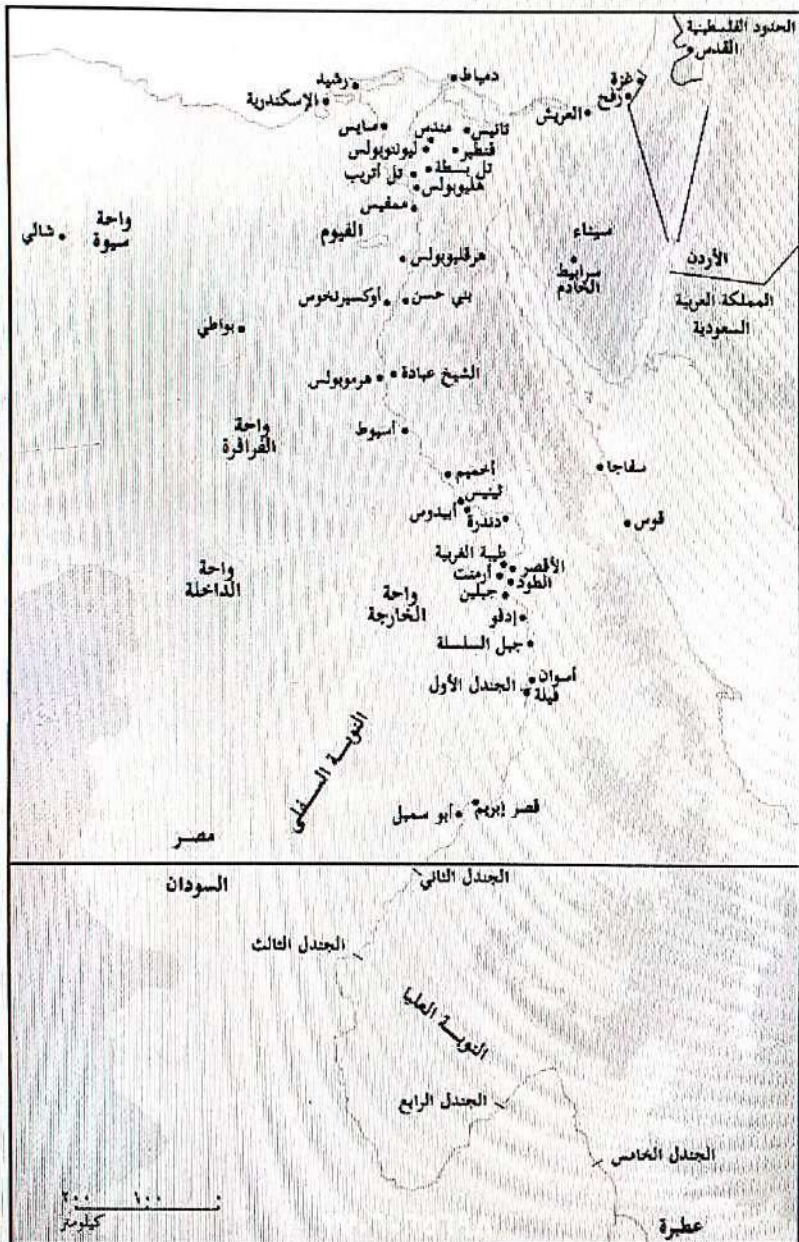 الحدود الفلسطينية
القدس
غزة
رفح
العريش
دمياط
رشيد
الإسكندرية
تانيس
مندس
سايس
قنطير
ليونتوبولس
تل بسطة
تل أتريب
هليوبولس
ممفيس
الفيوم
سيناء
سرابيط
الخادم
الأردن
المملكة العربية
السعودية
واحة
سيوة
شالي
هرقليوبولس
بني حسن
أوكسيرنخوس
بواطي
الشيخ عبادة
هرموبولس
واحة
الفرافرة
أسيوط
أخميم
سفاجا
ثينيس
أبيدوس
دندرة
قوس
طيبة الغربية
الأقصر
أرمنت
الطود
جبلين
واحة
الداخلة
واحة
الخارجة
إدفو
جبل السلسلة
أسوان
الجندل الأول
فيلة
النوبة السفلى
قصر إبريم
أبو سمبل
مصر
السودان
الجندل الثاني
الجندل الثالث
النوبة العليا
الجندل الرابع
الجندل الخامس
عطبرة
٢٠٠ ١٠٠ ٠
كيلومتر